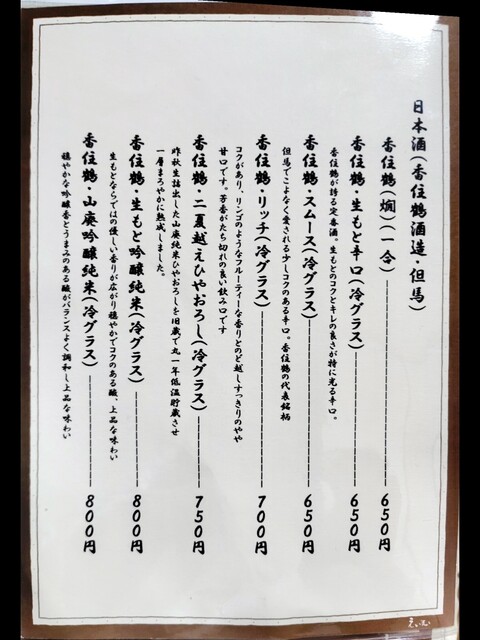 日本酒(香住鶴酒造・但馬)
香住鶴(燗)(一合)――――――650円
香住鶴・生もと辛口(冷グラス)――――――650円
香住鶴が誇る定番酒。生もとのコクとキレの良さが特に光る辛口。
香住鶴・スムース(冷グラス)――――――650円
但馬でこよなく愛される少しコクのある辛口。香住鶴の代表銘柄
香住鶴・リッチ(冷グラス)――――――700円
コクがあり、リンゴのようなフルーティーな香りとのど越しすっきりのやや
甘口です。芳香がたち切れの良い飲み口です
香住鶴・二夏越えひやおろし(冷グラス)――――――750円
昨秋生詰出した山廃純米ひやおろしを旧蔵で丸一年低温貯蔵させ
一層まろやかに熟成しました。
香住鶴・生もと吟醸純米(冷グラス)――――――800円
生もとならではの優しい香りが広がり穏やかでコクのある酸、上品な味わい
香住鶴・山廃吟醸純米(冷グラス)――――――800円
穏やかな吟醸香とうまみのある酸がバランスよく調和し上品な味わい